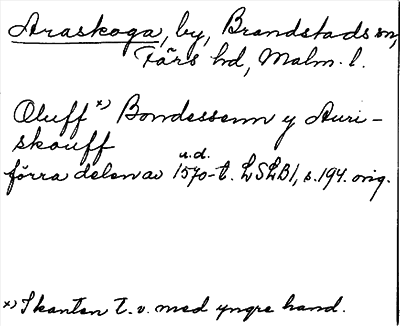 Araskoga, by, Brandstads sn,
Färs hd, Malm. l.
Oluff *) Bondessenn y Auri-
skouff
u.d.
förra delen av 1570-t. LSLB1, s. 194. orig.
*) I kanten t. v. med yngre hand.